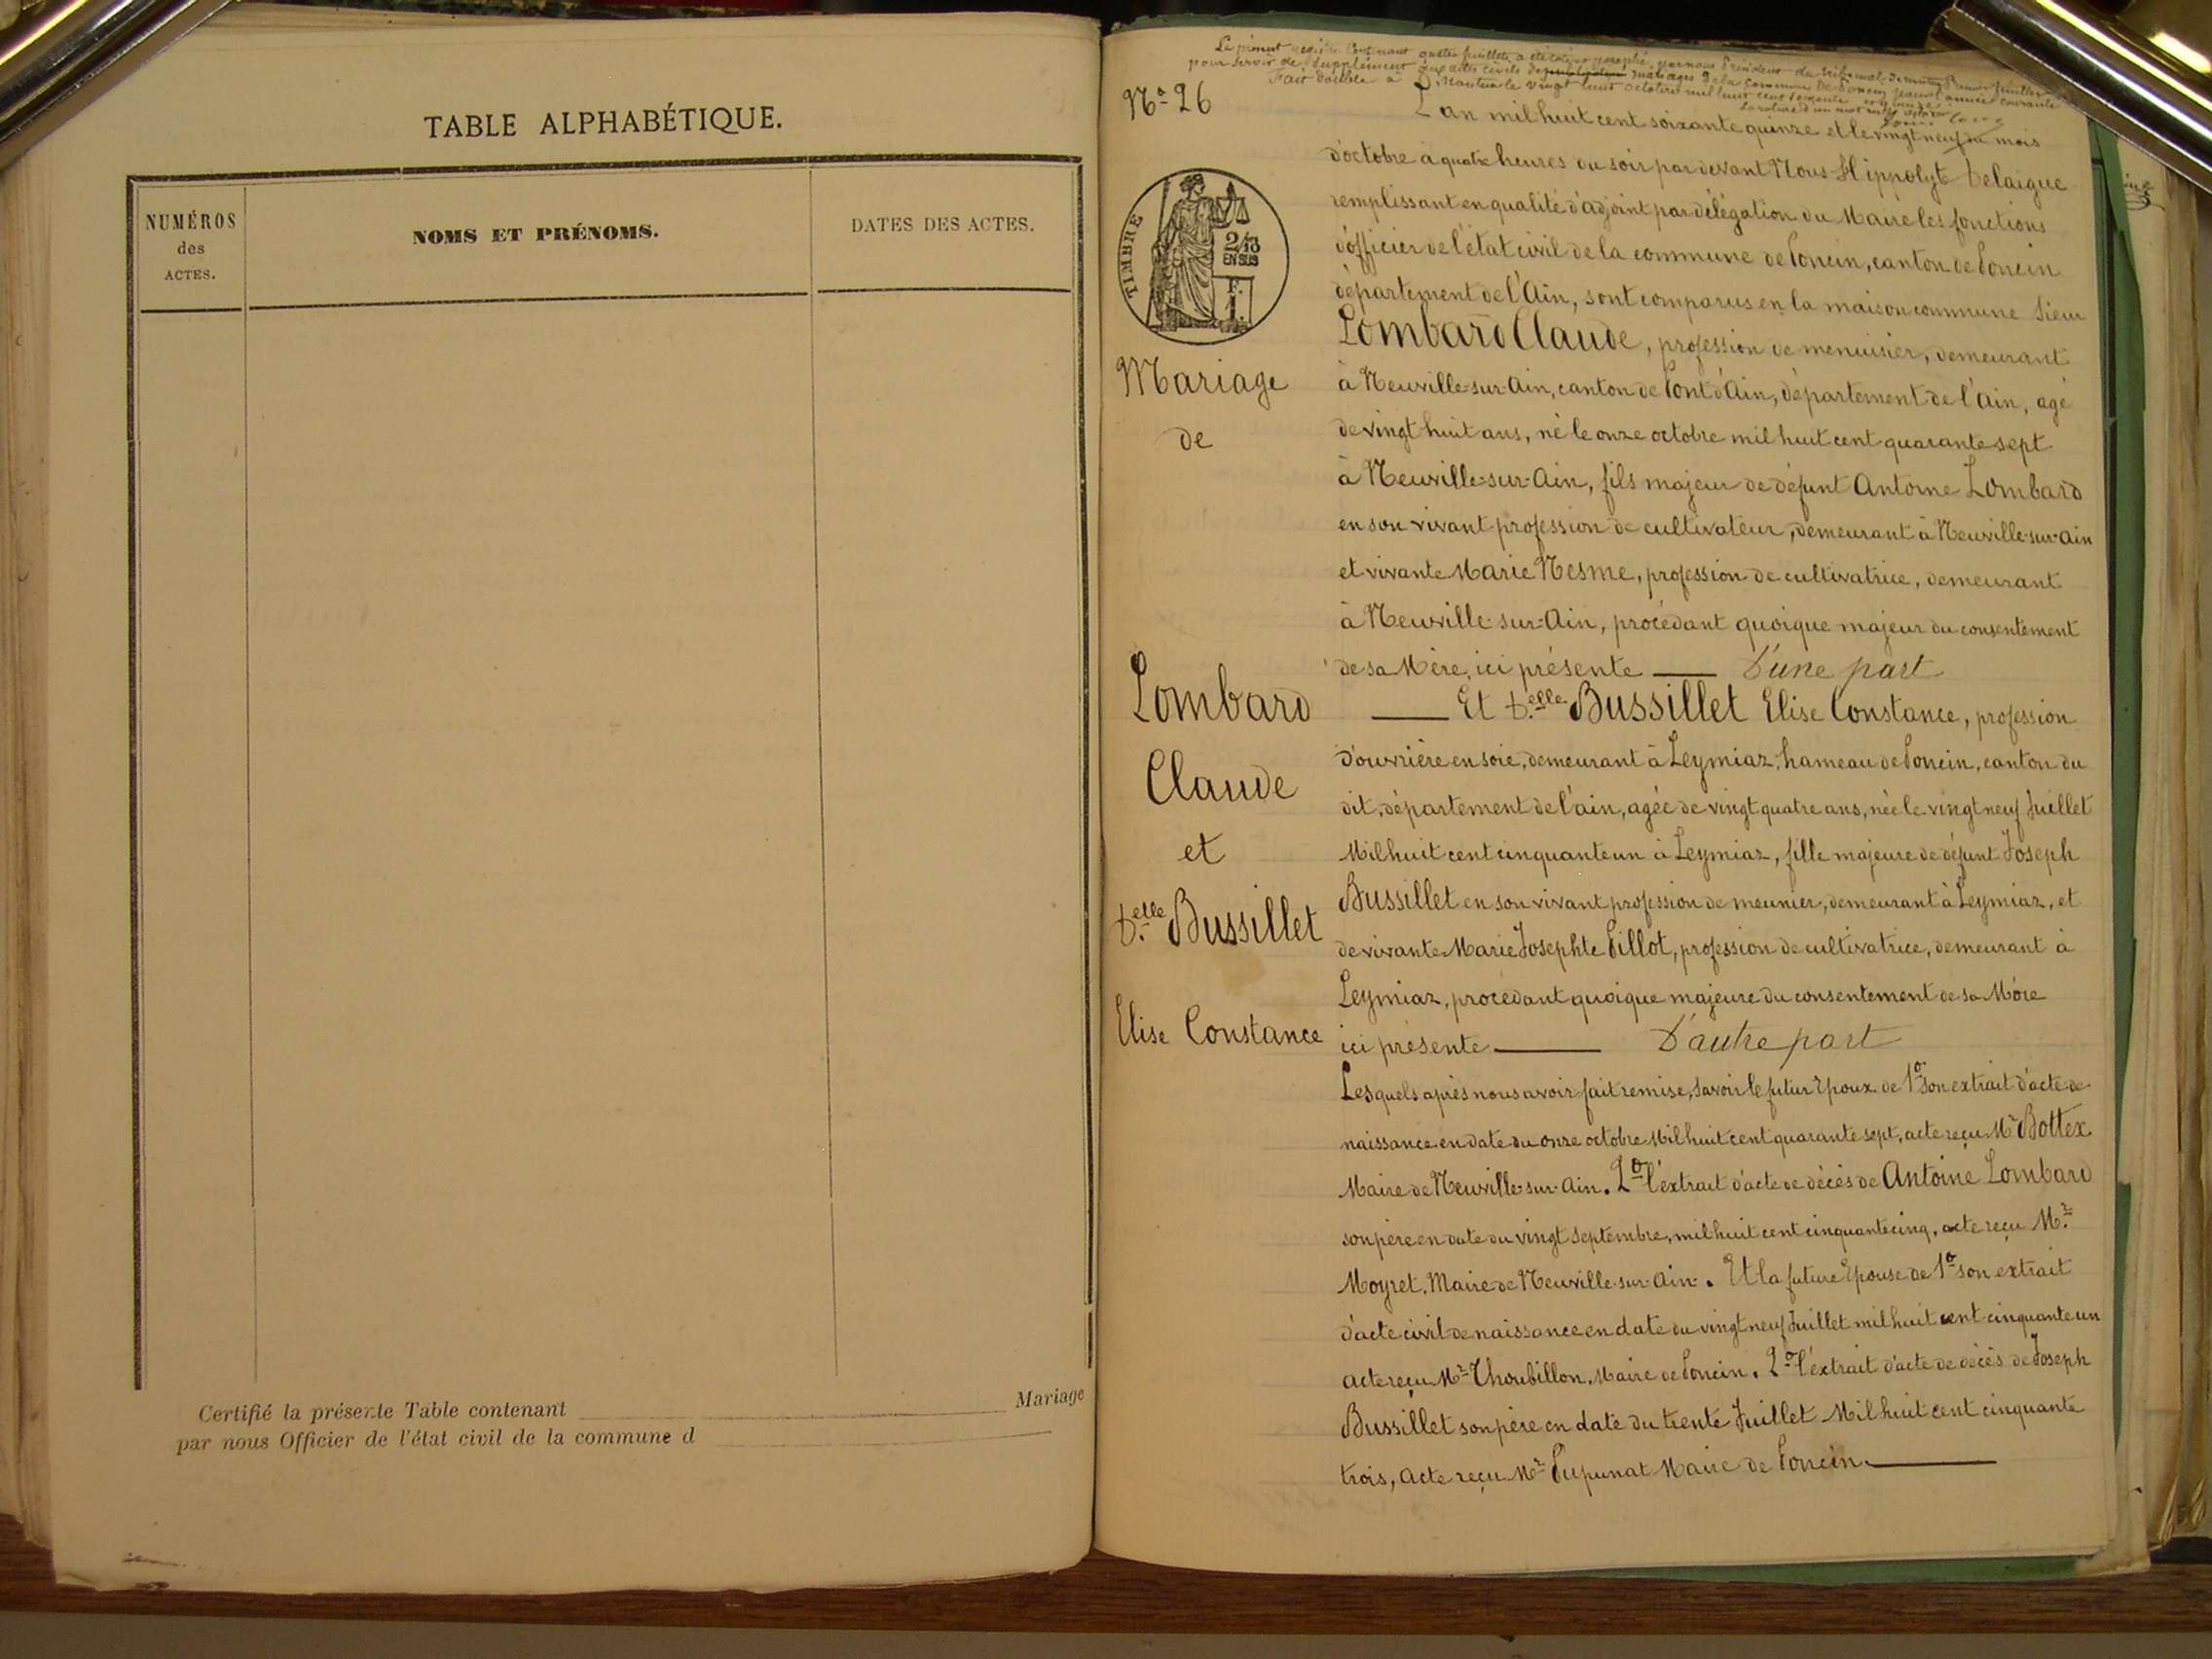 TABLE ALPHABÉTIQUE.
NUMÉROS
des
ACTES.
NOMS ET PRÉNOMS.
DATES DES ACTES.
Certifié la présente Table contenant Mariage
par nous Officier de l'état civil de la commune d
Le présent registre Contenant quatre feuillets a été coté et paraphé par nous Président du tribunal de
pour servir de supplément aux actes civils de mariages de la Commune de Poncin pour l'année courante
Fait double à Nantua le vingt huit octobre mil huit cent soixante quinze
No 26
L'an mil huit cent soixante quinze et le vingt neuf du mois
d'octobre à quatre heures du soir par devant Nous Hippolyte Delaigue
remplissant en qualité d'adjoint par délégation du Maire les fonctions
d'officier de l'état civil de la commune de Poncin, canton de Poncin
département de l'Ain, sont comparus en la maison commune Sieur
TIMBRE
2/10
EN SUS
Lombard Claude, profession de menuisier, demeurant
Mariage
à Neuville-sur-Ain, canton de Pont d'Ain, département de l'Ain, agé
de
de vingt huit ans, né le onze octobre mil huit cent quarante sept
à Neuville-sur-Ain, fils majeur de défunt Antoine Lombard
en son vivant profession de cultivateur, demeurant à Neuville-sur-Ain
et vivante Marie Nesme, profession de cultivatrice, demeurant
à Neuville-sur-Ain, procédant quoique majeur du consentement
de sa Mère, ici présente D'une part
Lombard
Et D.elle Bussillet Elise Constance, profession
Claude
d'ouvrière en soie, demeurant à Leymiaz, hameau de Poncin, canton du
dit, département de l'ain, agée de vingt quatre ans, née le vingt neuf Juillet
et
Mil huit cent cinquante un à Leymiaz, fille majeure de défunt Joseph
D.elle Bussillet
Bussillet en son vivant profession de meunier, demeurant à Leymiaz, et
de vivante Marie Josephte Pillot, profession de cultivatrice, demeurant à
Leymiaz, procédant quoique majeure du consentement de sa Mère
Elise Constance
ici présente D'autre part
Lesquels après nous avoir fait remise, Savoir le futur Epoux de 1o son extrait d'acte de
naissance en date du onze octobre Mil huit cent quarante sept, acte reçu Mr Bottex
Maire de Neuville-sur-Ain. 2o l'extrait d'acte de décès de Antoine Lombard
son père en date du vingt Septembre, mil huit cent cinquante cinq, acte reçu Mr.
Moyret, Maire de Neuville-sur-Ain. Et la future Epouse de 1o son extrait
d'acte civil de naissance en date du vingt neuf Juillet mil huit cent cinquante un
acte reçu Mr Thoubillon, Maire de Poncin. 2o l'extrait d'acte de décès de Joseph
Bussillet son père en date du trente Juillet Mil huit cent cinquante
trois, Acte reçu Mr Pupunat Maire de Poncin.